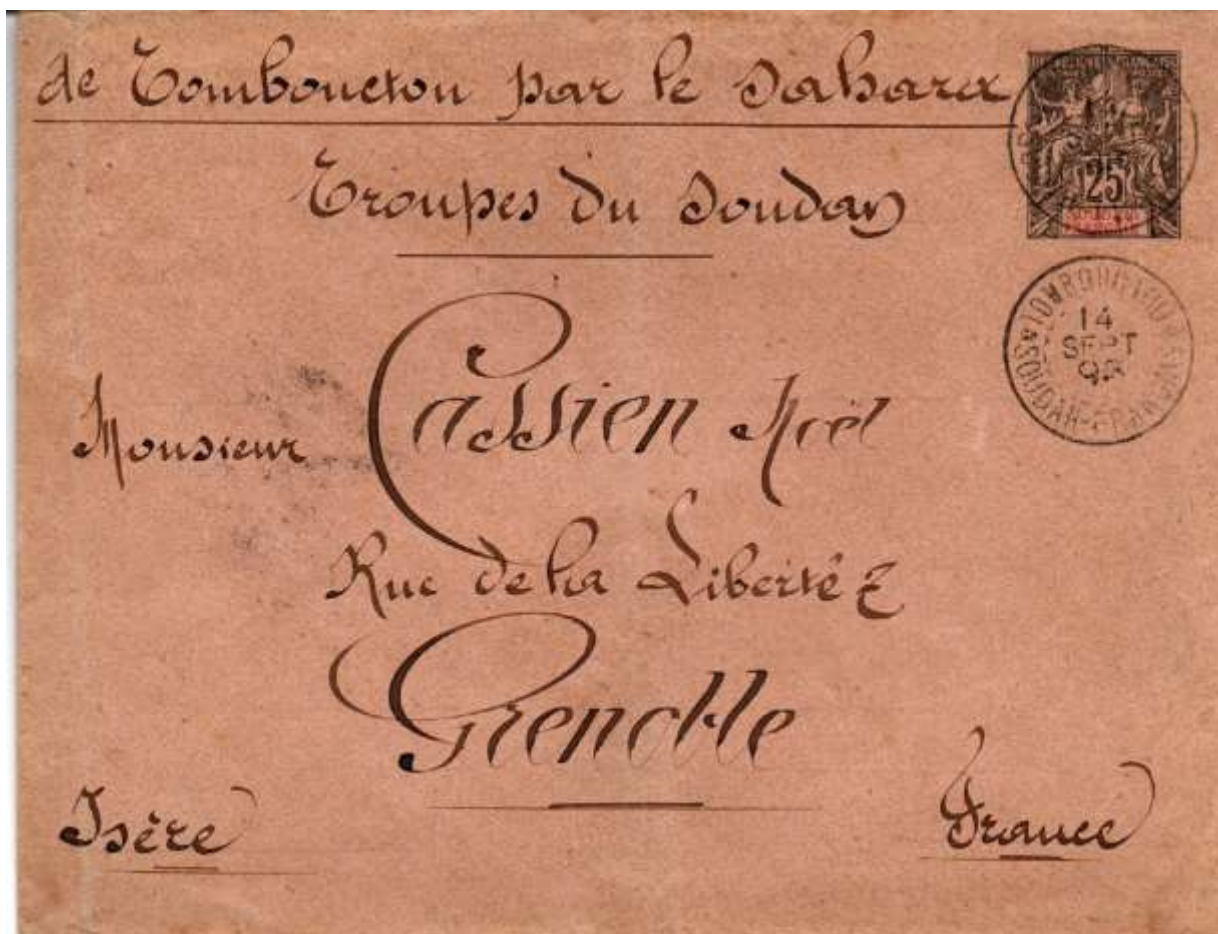 de Tombouctou par le Sahara
25
Troupes du Soudan
TOMBOUCTOU
14
SEPT
SOUDAN-FRANÇAIS
Monsieur Cassien Noël
Rue de la Liberté 2
Grenoble
Isère
France